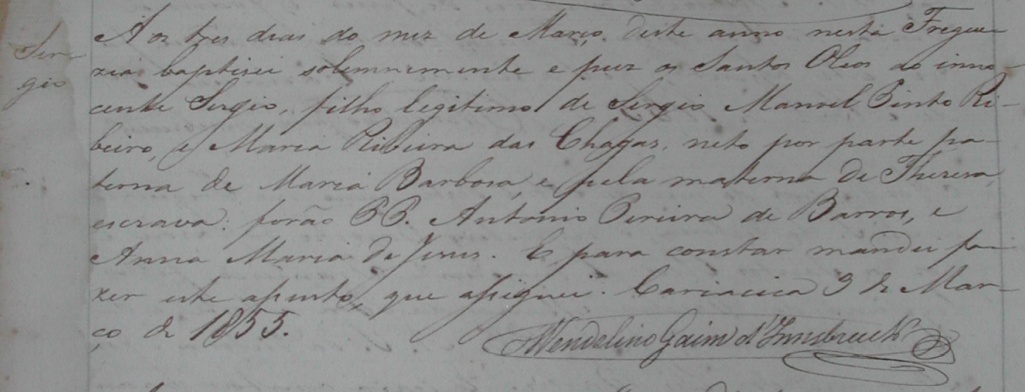 Ser
gio
Aos tres dias do mez de Março deste anno nesta Fregue-
zia baptisei solemnemente e puz os Santos Oleos ao inno-
cente Sergio, filho legitimo de Sergio Manoel Pinto Ri-
beiro, e Maria Ribeira das Chagas, neto por parte pa-
terna de Maria Barbosa, e pela materna de Thereza,
escrava: forão PP. Antonio Pereira de Barros, e
Anna Maria de Jesus. E para constar mandei fa-
zer este assento, que assignei. Cariacica 3 de Mar-
ço de 1855.
Wendelino Gaim d'Innsbruck